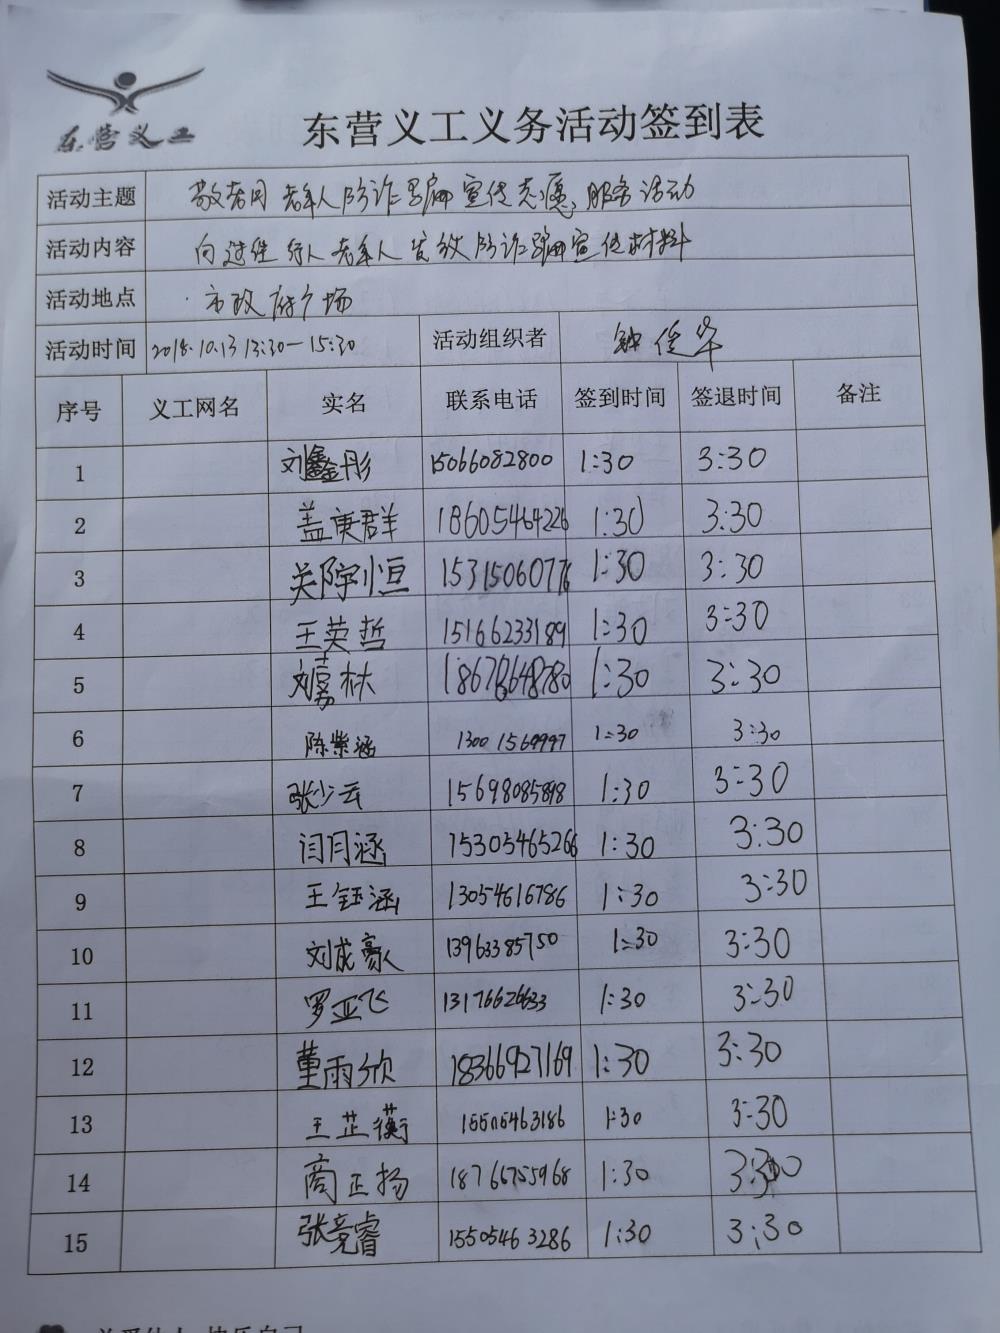 东营义工
东营义工义务活动签到表
活动主题 敬老月老年人防诈骗宣传志愿服务活动
活动内容 向过往行人老年人发放防诈骗宣传材料
活动地点 市政府广场
活动时间 2018.10.13 13:30—15:30 活动组织者 钟俊华
序号 义工网名 实名 联系电话 签到时间 签退时间 备注
1 刘鑫彤 15066082800 1:30 3:30
2 盖庚群 18605464226 1:30 3:30
3 关宇恒 15315060776 1:30 3:30
4 王英哲 15166233189 1:30 3:30
5 刘嘉林 1:30 3:30
6 陈紫涵 1:30 3:30
7 张少云 15698085898 1:30 3:30
8 闫月涵 15305465266 1:30 3:30
9 王钰涵 13054616786 1:30 3:30
10 刘成豪 13963385750 1:30 3:30
11 罗亚飞 13176626633 1:30 3:30
12 董雨欣 18366927169 1:30 3:30
13 王芷蘅 15505463186 1:30 3:30
14 商正扬 18766755968 1:30 3:30
15 张竞睿 15505463286 1:30 3:30